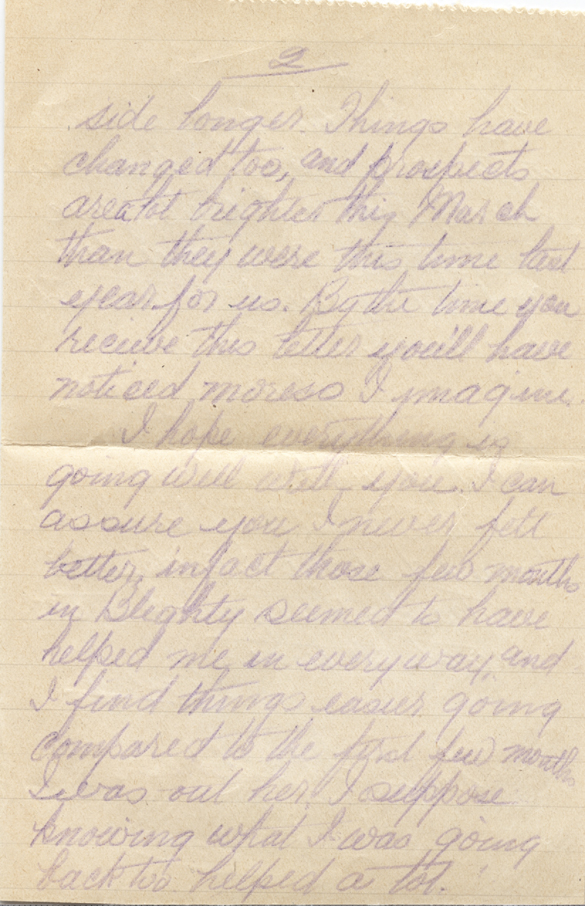 2
side longer. Things have
changed too, and prospects
are a lot brighter this March
than they were this time last
year for us. By the time you
recieve this letter you'll have
noticed moreso I imagine.
I hope everything is
going well with you. I can
assure you I never felt
better, infact those few months
in Blighty seemed to have
helped me in every way, and
I find things easier going
compared to the first few months
I was out her, I suppose
knowing what I was going
back too helped a lot.